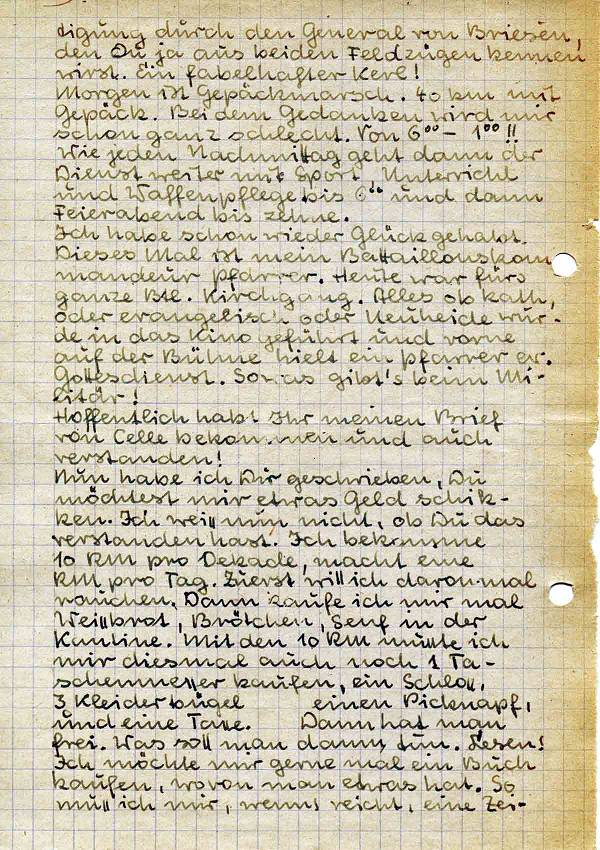 digung durch den General von Briesen,
den Du ja aus beiden Feldzügen kennen
wirst. Ein fabelhafter Kerl!
Morgen ist Gepäckmarsch. 40 km mit
Gepäck. Bei dem Gedanken wird mir
schon ganz schlecht. Von 6⁰⁰ – 1⁰⁰!!
Wie jeden Nachmittag geht dann der
Dienst weiter mit Sport, Unterricht
und Waffenpflege bis 6⁰⁰ und dann
Feierabend bis zehne.
Ich habe schon wieder Glück gehabt.
Dieses Mal ist mein Battaillonskom
mandeur Pfarrer. Heute war fürs
ganze Btl. Kirchgang. Alles ob kath,
oder evangelisch oder Neuheide wur-
de in das Kino geführt und vorne
auf der Bühne hielt ein Pfarrer ev.
Gottesdienst. Sowas gibt's beim Mi-
litär!
Hoffentlich habt Ihr meinen Brief
von Celle bekommen und auch
verstanden!
Nun habe ich Dir geschrieben, Du
möchtest mir etwas Geld schik-
ken. Ich weiß nun nicht, ob Du das
verstanden hast. Ich bekomme
10 RM pro Dekade, macht eine
RM pro Tag. Zuerst will ich davon mal
rauchen. Dann kaufe ich mir mal
Weißbrot, Brötchen, Senf in der
Kantine. Mit den 10 RM müßte ich
mir diesmal auch noch 1 Ta-
schenmesser kaufen, ein Schloß,
3 Kleiderbügel einen Picknapf,
und eine Tasse. Dann hat man
frei. Was soll man dann tun. Lesen!
Ich möchte mir gerne mal ein Buch
kaufen, wovon man etwas hat. So
muß ich mir, wenns reicht, eine Zei-